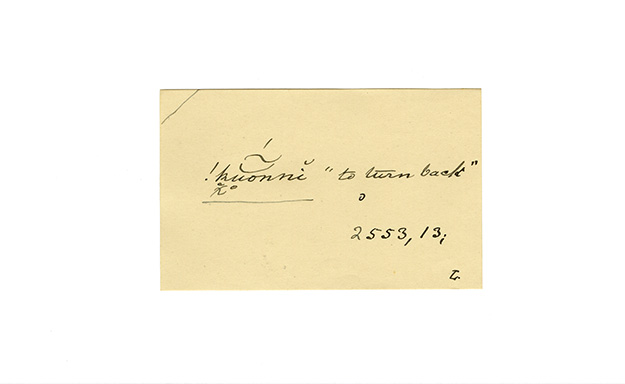 !kŭŏnnĭ " to turn back"
2553, 13;
L.